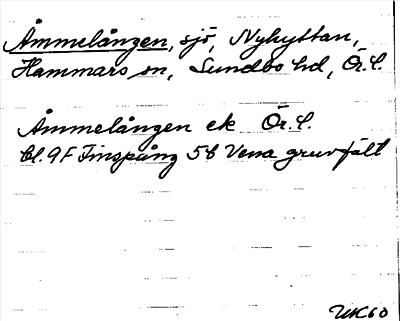 Åmmelången, sjö, Nyhyttan,
Hammars sn, Sundbo hd, Ör.l.
Åmmelången ek Ör.l.
bl. 9F Finspång 5b Vena gruvfält
UK60